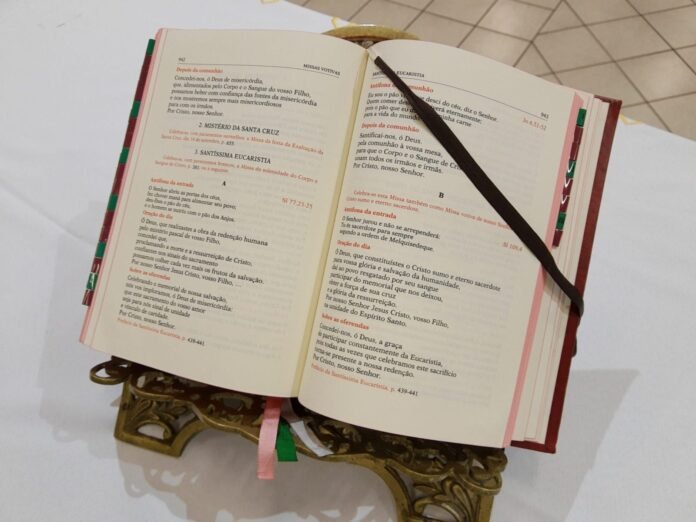 942
MISSAS VOTIVAS
Depois da comunhão
Concedei-nos, ó Deus de misericórdia,
que, alimentados pelo Corpo e o Sangue do vosso Filho,
possamos beber com confiança das fontes da misericórdia
e nos mostremos sempre mais misericordiosos
para com os irmãos.
Por Cristo, nosso Senhor.
2. MISTÉRIO DA SANTA CRUZ
Celebra-se, com paramentos vermelhos, a Missa da festa da Exaltação da
Santa Cruz, dia 14 de setembro, p.
3. SANTÍSSIMA EUCARISTIA
Celebra-se, com paramentos brancos, a Missa da solenidade do Corpo e
Sangue de Cristo, p. ou a seguinte.
A
Antífona da entrada
Sl 77,23-25
O Senhor abriu as portas dos céus,
fez chover maná para alimentar seu povo;
deu-lhes o pão do céu,
e o homem se nutriu com o pão dos Anjos.
Oração do dia
Ó Deus, que realizastes a obra da redenção humana
pelo mistério pascal de vosso Filho,
concedei que,
proclamando a morte e a ressurreição de Cristo,
confiantes nos sinais do sacramento,
possamos colher cada vez mais os frutos da salvação.
Por nosso Senhor Jesus Cristo, vosso Filho, ...
Sobre as oferendas
Celebrando o memorial de nossa salvação,
nós vos suplicamos, ó Deus de misericórdia:
que este sacramento do vosso amor
seja para nós sinal de unidade
e vínculo de caridade.
Por Cristo, nosso Senhor.
Prefácio da Santíssima Eucaristia, p. 439-441
EUCARISTIA
943
Antífona da comunhão
Jo 6,51-52
Eu sou o pão vivo que desci do céu, diz o Senhor.
Quem comer deste pão viverá eternamente:
e o pão que eu darei é a minha carne
para a vida do mundo.
Depois da comunhão
Santificai-nos, ó Deus,
pela comunhão à vossa mesa,
para que o Corpo e o Sangue de Cristo
unam todos os irmãos e irmãs.
Por Cristo, nosso Senhor.
B
Celebra-se esta Missa também como Missa votiva de nosso Senhor Jesus
Cristo sumo e eterno sacerdote.
Antífona da entrada
Sl 109,4
O Senhor jurou e não se arrependerá:
Tu és sacerdote para sempre
segundo a ordem de Melquisedeque.
Oração do dia
Ó Deus, que constituístes o Cristo sumo e eterno sacerdote
para vossa glória e salvação da humanidade,
dai ao povo resgatado por seu sangue
participar do memorial que nos deixou,
obter a força de sua cruz
e a glória da ressurreição.
Por nosso Senhor Jesus Cristo, vosso Filho,
na unidade do Espírito Santo.
Sobre as oferendas
Concedei-nos, ó Deus, a graça
de participar constantemente da Eucaristia,
pois todas as vezes que celebramos este sacrifício
torna-se presente a nossa redenção.
Por Cristo, nosso Senhor.
Prefácio da Santíssima Eucaristia, p. 439-441